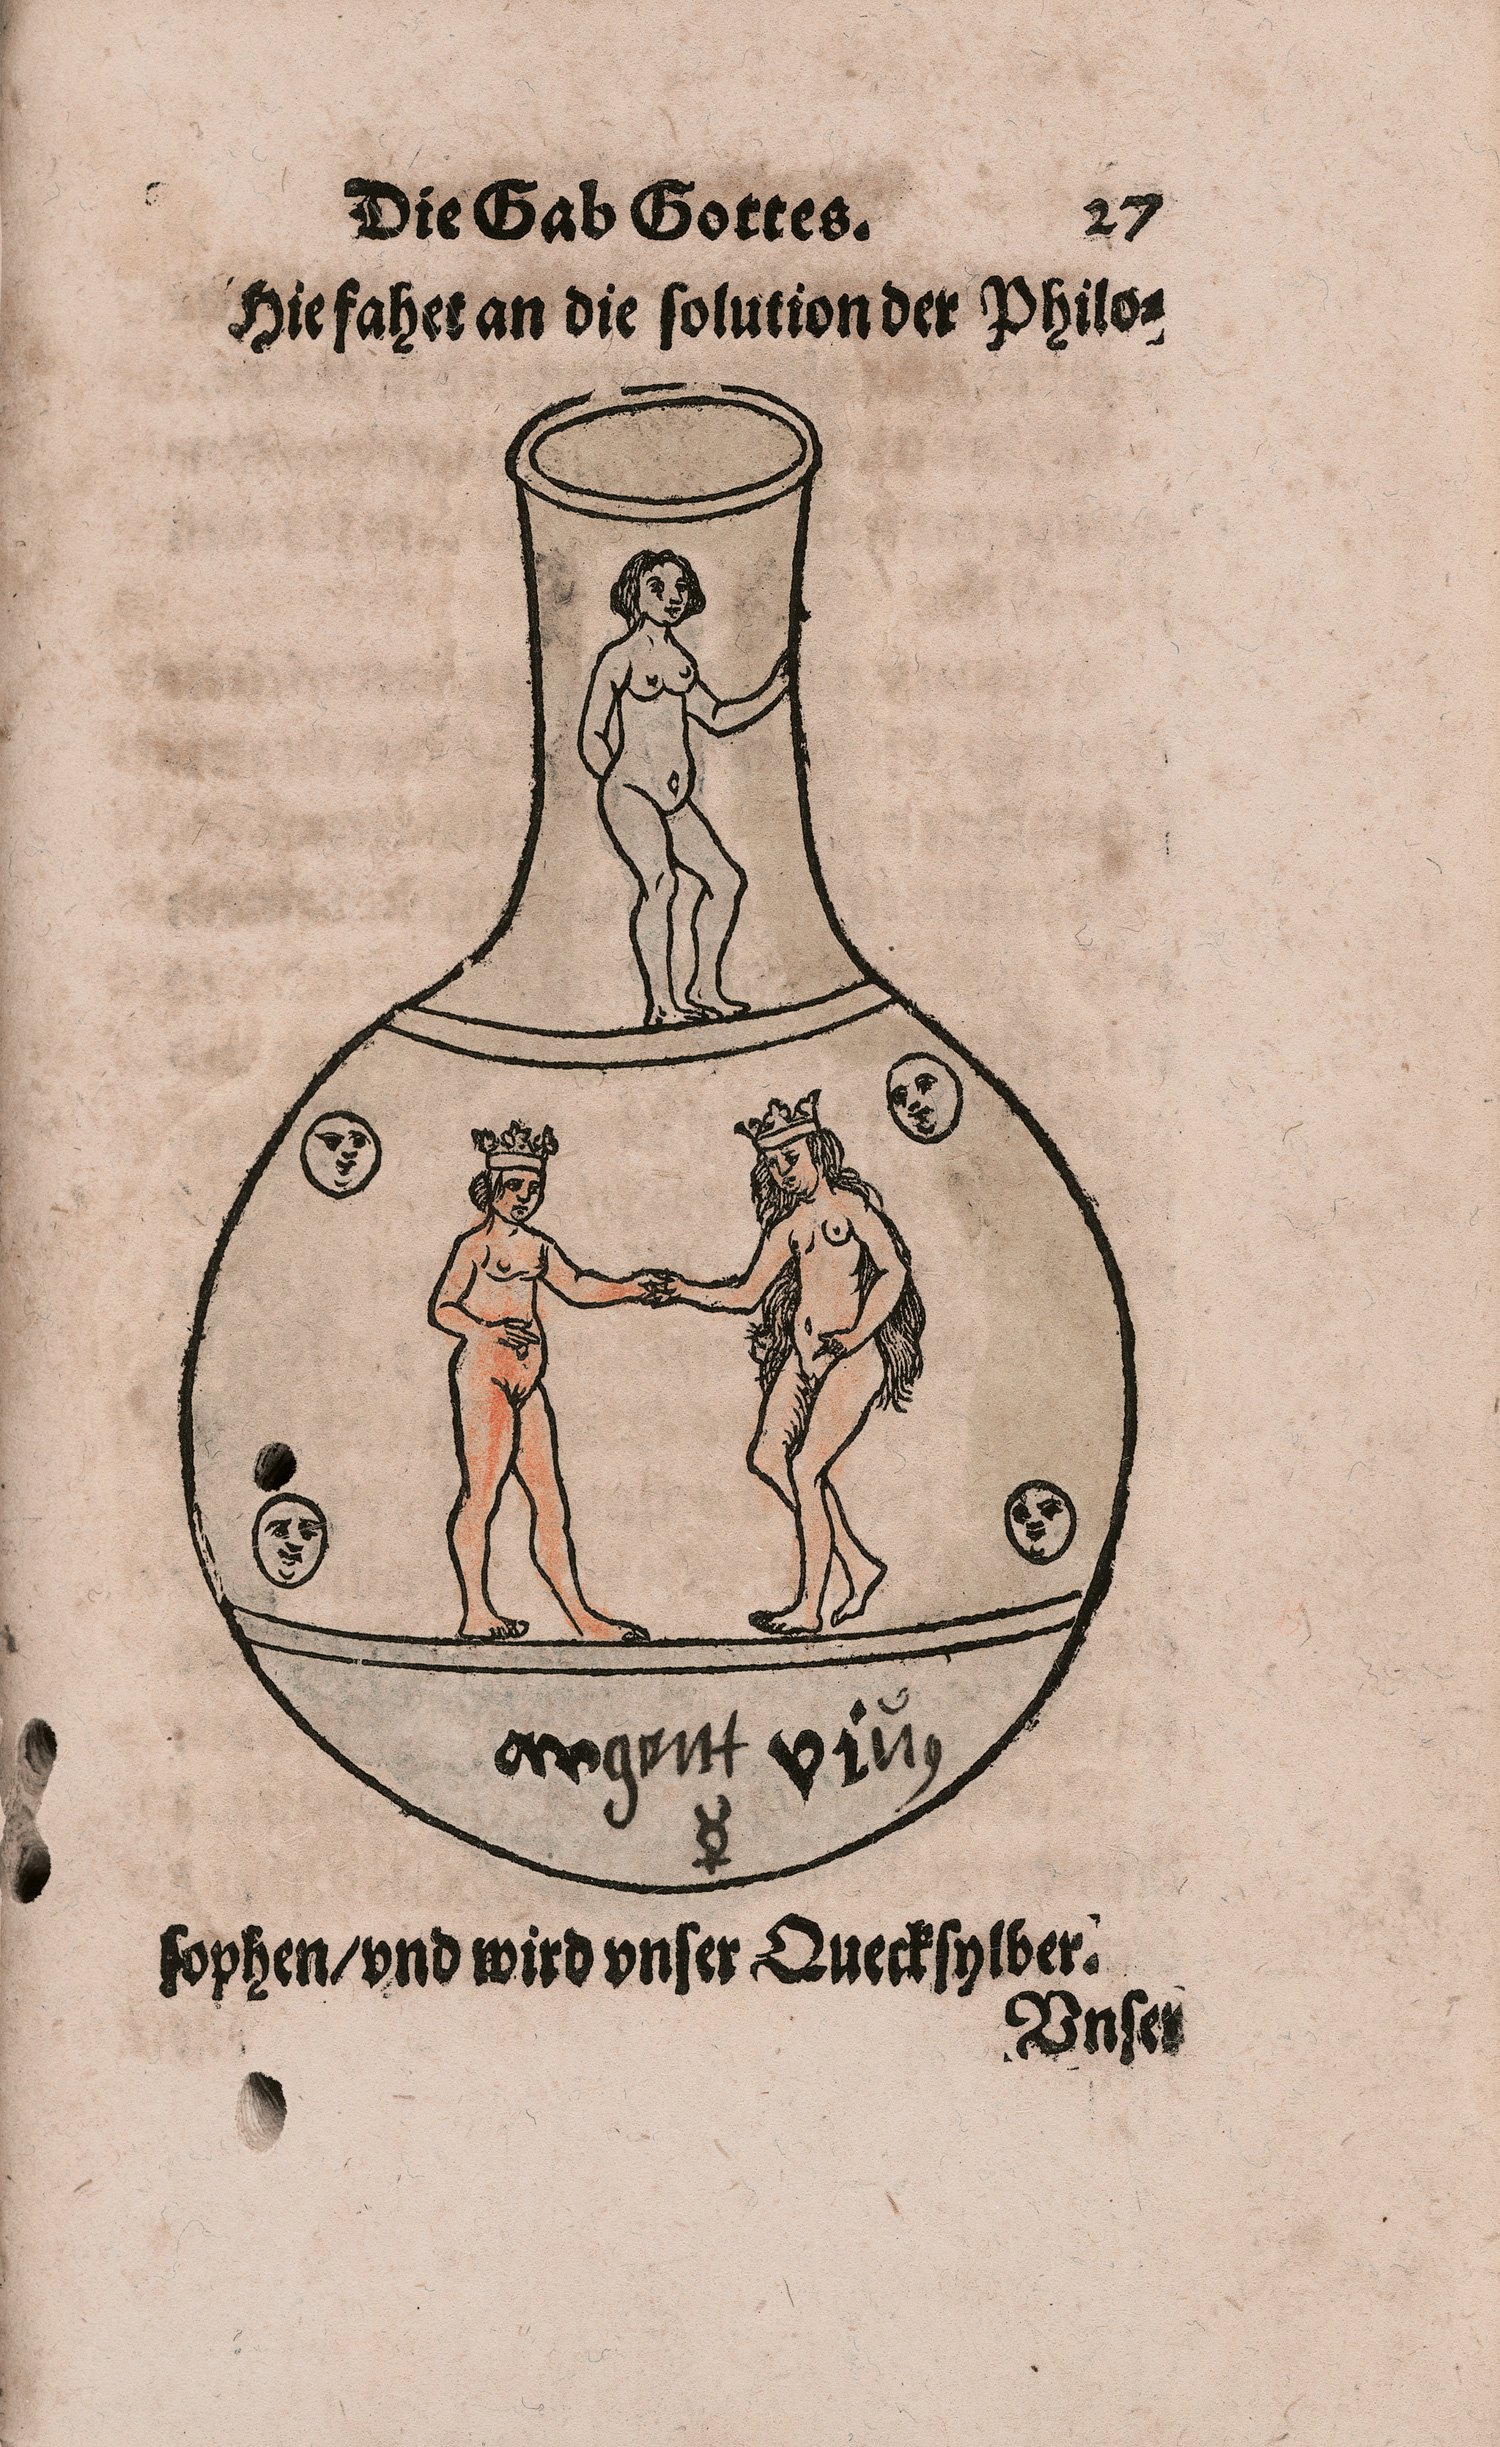 Die Gab Gottes. 27
Hie fahet an die solution der Philo⸗
argent viŭ
☿
sophen/vnd wird vnser Quecksylber.
Vnser